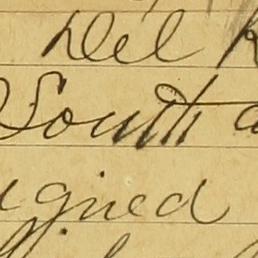 Del
South a
igned